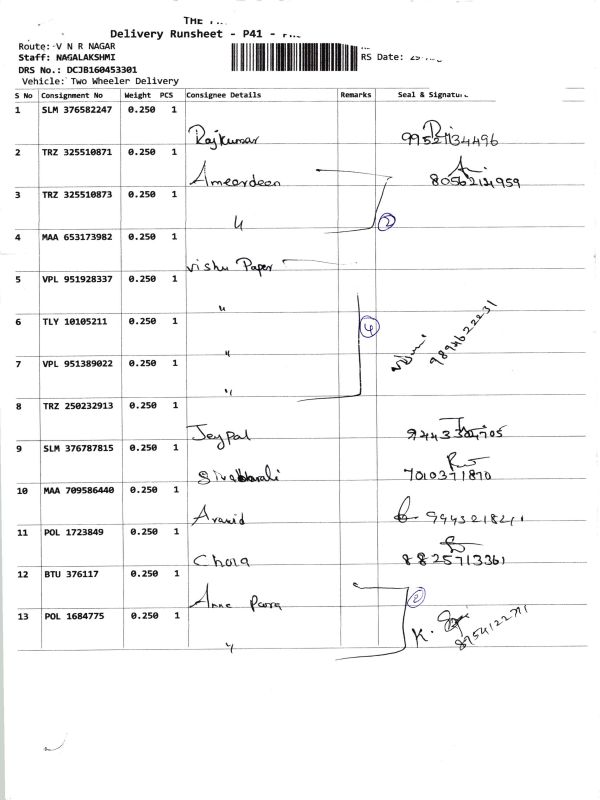 THE
Delivery Runsheet - P41 -
Route: V N R NAGAR
Staff: NAGALAKSHMI RS Date:
DRS No.: DCJB160453301
Vehicle: Two Wheeler Delivery
S No Consignment No Weight PCS Consignee Details Remarks Seal & Signature
1 SLM 376582247 0.250 1
Rajkumar
2 TRZ 325510871 0.250 1
Ameerdeen
3 TRZ 325510873 0.250 1
" 2
4 MAA 653173982 0.250 1
Vishu Paper
5 VPL 951928337 0.250 1
"
6 TLY 10105211 0.250 1
" 4 9894622231
7 VPL 951389022 0.250 1
"
8 TRZ 250232913 0.250 1
Jeypal
9 SLM 376787815 0.250 1
7010371870
10 MAA 709586440 0.250 1
Aravid
11 POL 1723849 0.250 1
Chola 8825713361
12 BTU 376117 0.250 1
Anne 2
13 POL 1684775 0.250 1
" K. 8754122771